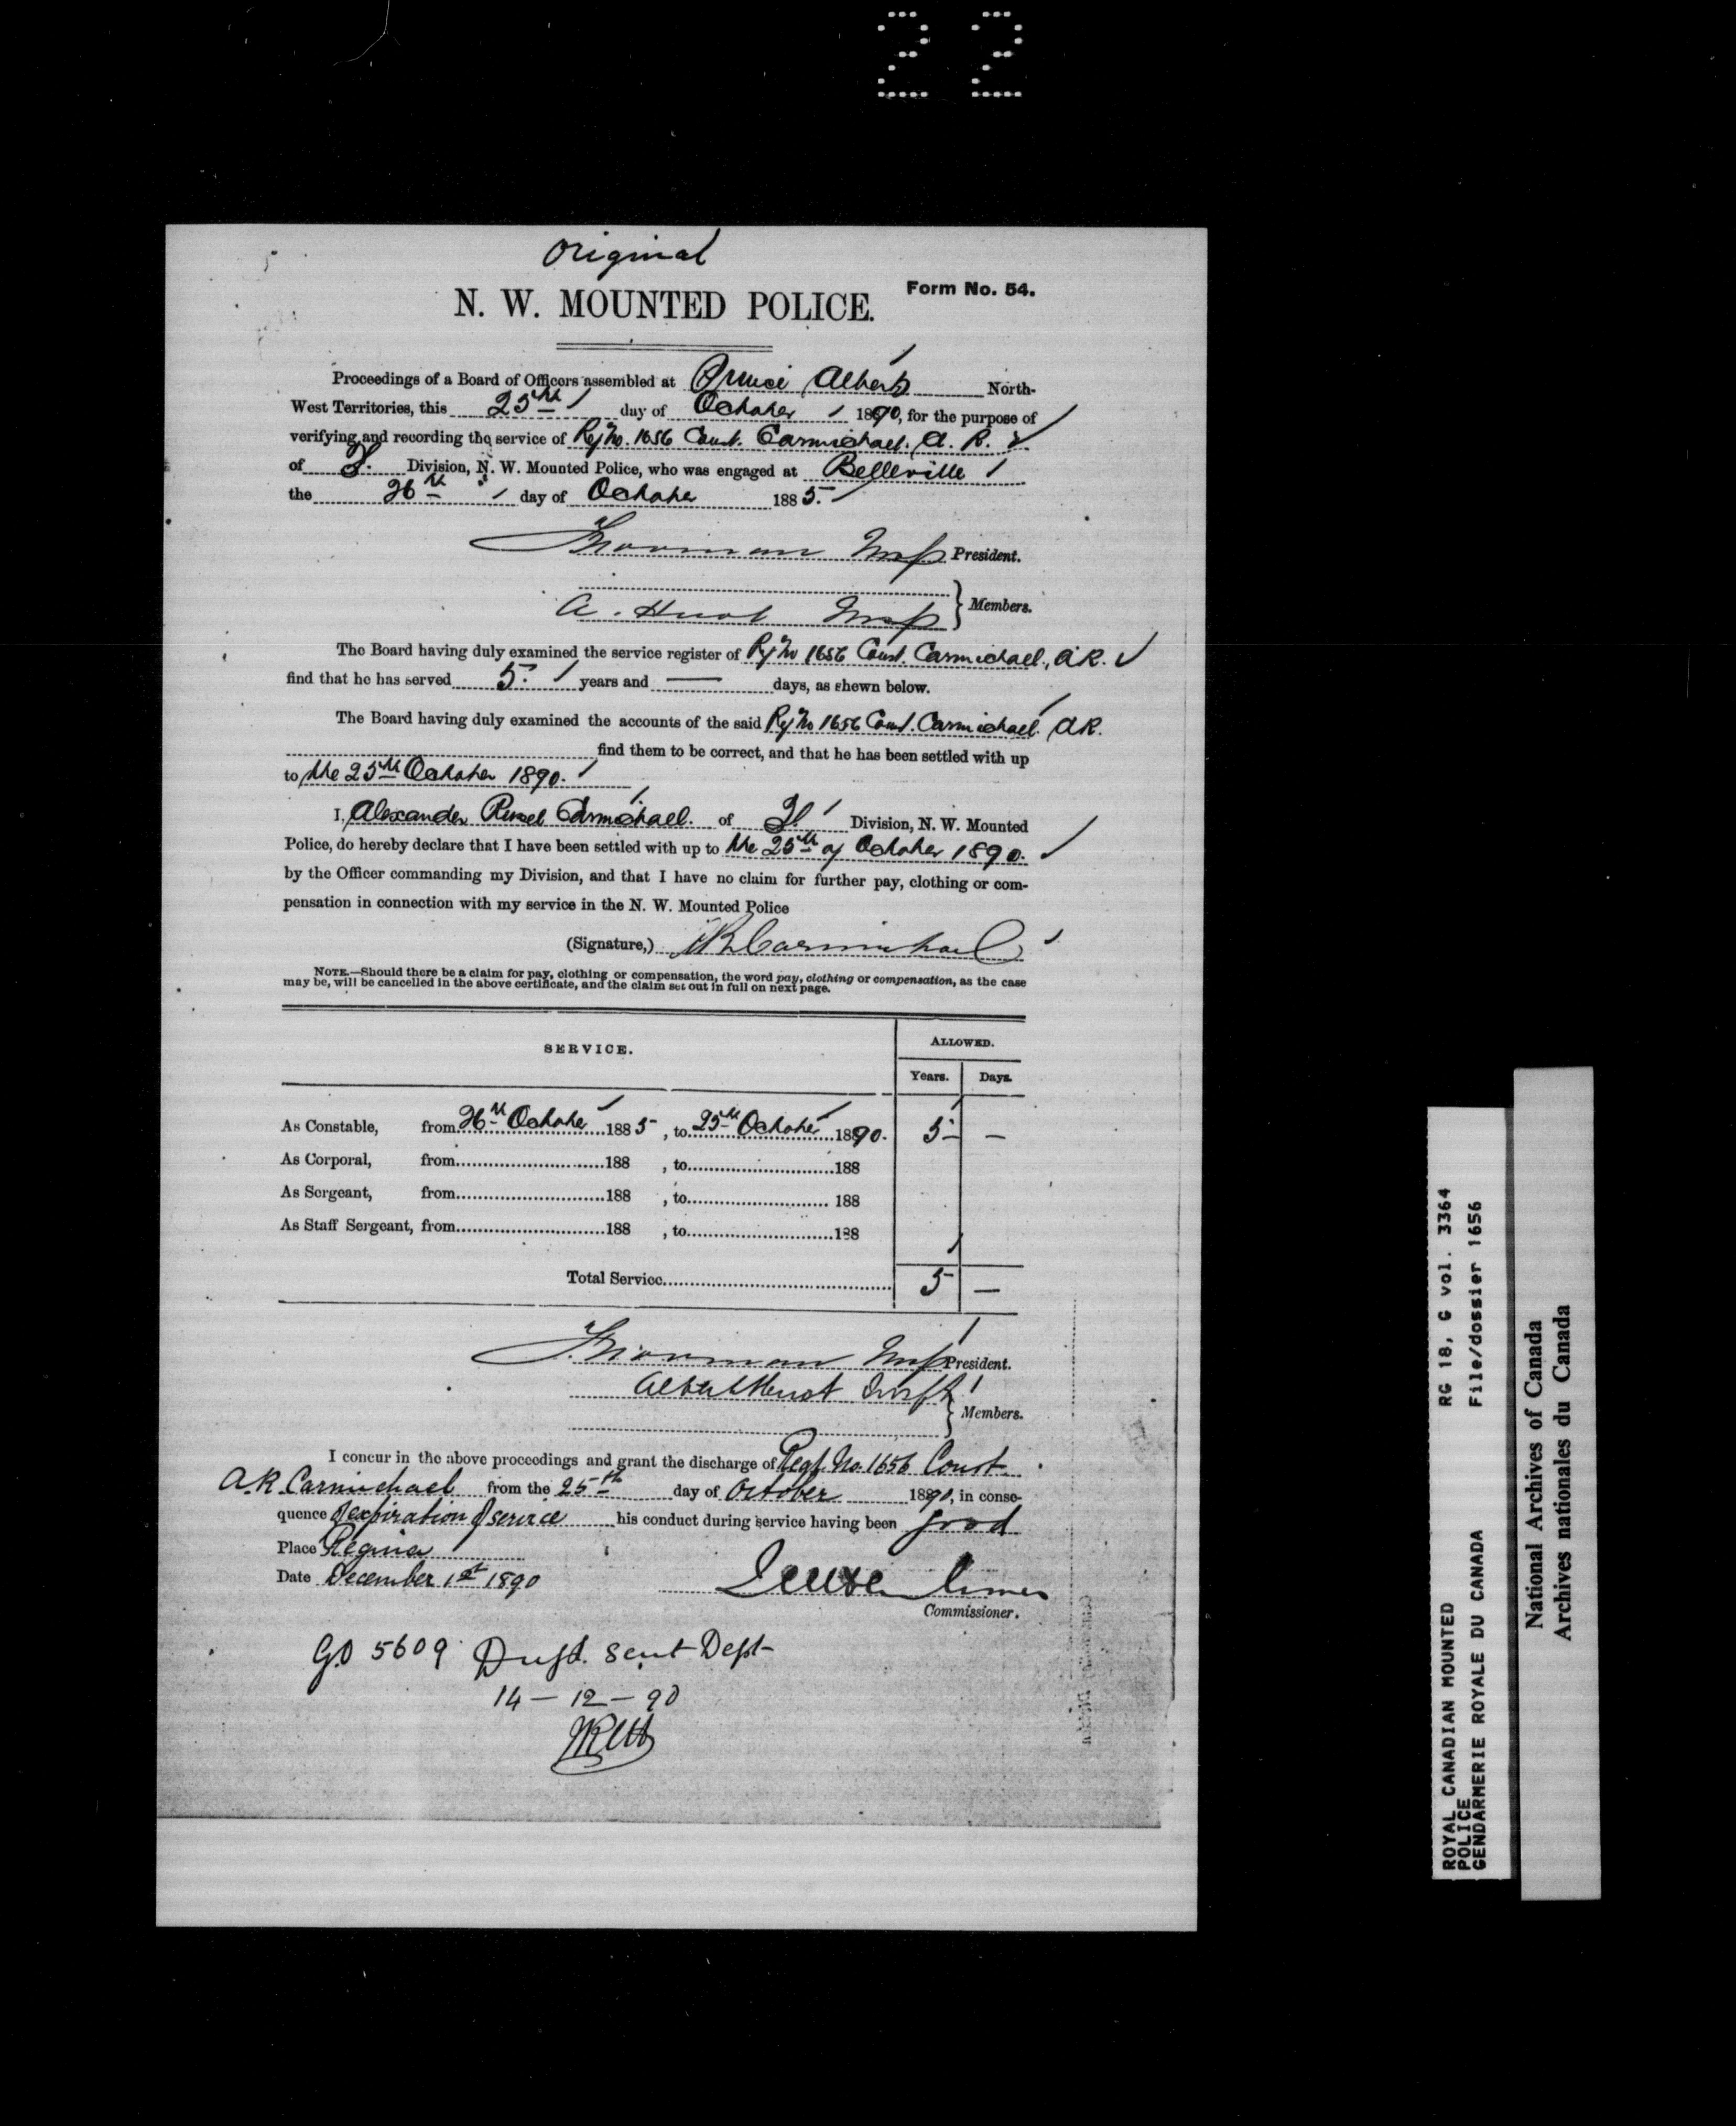 22
Original
Form No. 54.
N. W. MOUNTED POLICE.
Proceedings of a Board of Officers assembled at Prince Albert North-
West Territories, this 25th day of October 1890, for the purpose of
verifying and recording the service of Rg No. 1656 Const. Carmichael. A. R.
of Division, N. W. Mounted Police, who was engaged at Belleville
the 26th day of October 1885.
Insp President.
A. Huot Insp Members.
The Board having duly examined the service register of Rg No 1656 Const. Carmichael, A.R.
find that he has served 5. years and — days, as shewn below.
The Board having duly examined the accounts of the said Rg No 1656 Const. Carmichael. A.R.
find them to be correct, and that he has been settled with up
to the 25th October 1890.
I, Alexander Carmichael. of Division, N. W. Mounted
Police, do hereby declare that I have been settled with up to the 25th of October 1890.
by the Officer commanding my Division, and that I have no claim for further pay, clothing or com-
pensation in connection with my service in the N. W. Mounted Police
(Signature,) A R Carmichael
NOTE.—Should there be a claim for pay, clothing or compensation, the word pay, clothing or compensation, as the case
may be, will be cancelled in the above certificate, and the claim set out in full on next page.
SERVICE. ALLOWED.
Years. Days.
As Constable, from 26th October 1885, to 25th October 1890. 5 —
As Corporal, from 188 , to 188
As Sergeant, from 188 , to 188
As Staff Sergeant, from 188 , to 188
Total Service 5 —
Insp President.
Albert Huot Insp
Members.
I concur in the above proceedings and grant the discharge of Regt. No. 1656 Const.
A.R. Carmichael from the 25th day of October 1890, in conse-
quence of expiration of service his conduct during service having been good
Place Regina
Date December 1st 1890
Commissioner.
G.O 5609 Dupl. sent Dept
14 — 12 — 90
ROYAL CANADIAN MOUNTED RG 18, G vol. 3364
POLICE
GENDARMERIE ROYALE DU CANADA File/dossier 1656
National Archives of Canada
Archives nationales du Canada